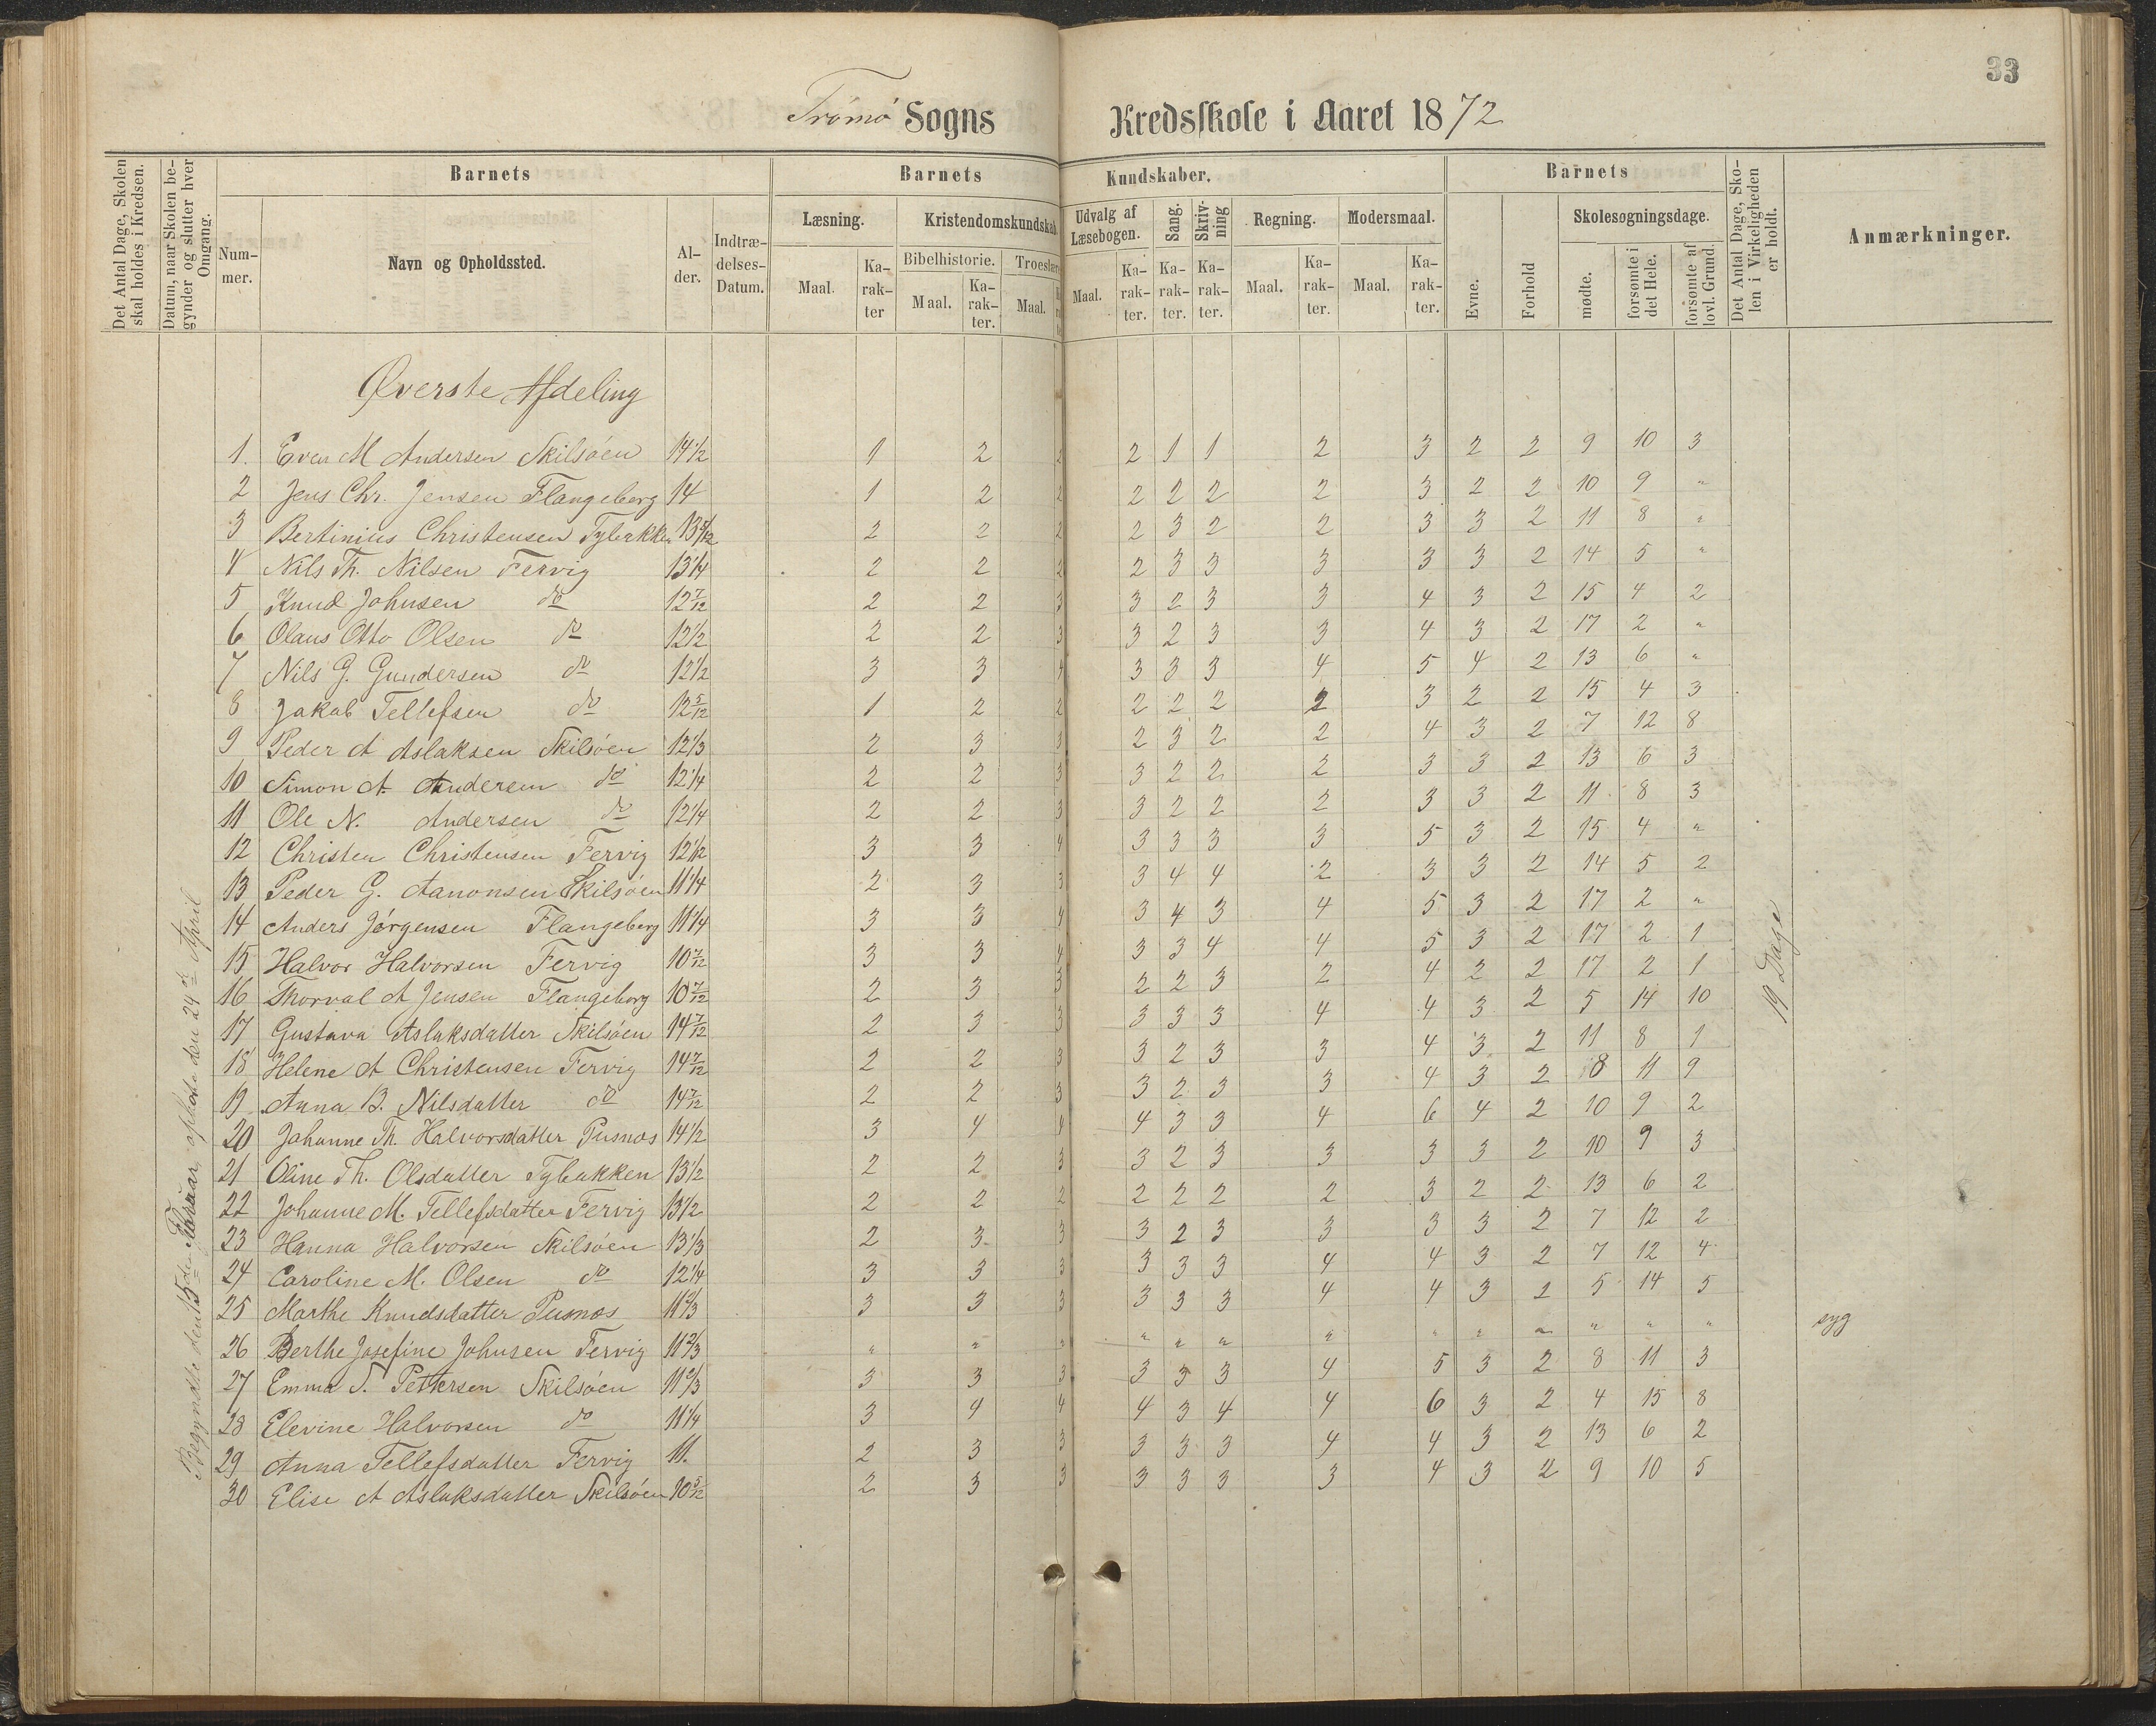 33
Tromø Sogns Kredsskole i Aaret 1872
Det Antal Dage, Skolen skal holdes i Kredsen.
Datum, naar Skolen begynder og slutter hver Omgang.
Barnets
Nummer.
Navn og Opholdssted.
Alder.
Indtrædelses-Datum.
Barnets Kundskaber.
Læsning.
Maal.
Karakter
Kristendomskundskab.
Bibelhistorie.
Maal.
Karakter.
Troeslære
Maal.
Udvalg af Læsebogen.
Maal.
Karakter.
Sang.
Karakter.
Skrivning
Karakter.
Regning.
Maal.
Karakter.
Modersmaal.
Maal.
Karakter.
Barnets
Evne.
Forhold
Skolesøgningsdage.
mødte.
forsømte i det Hele.
forsømte af lovl. Grund.
Det Antal Dage, Skolen i Virkeligheden er holdt.
Anmærkninger.
Øverste Afdeling
1. Even M Andersen Skilsøen 14 1/2 1 2 2 2 1 1 2 3 2 2 9 10 3
2 Jens Chr. Jensen Flangeborg 14 1 2 2 2 2 2 2 3 2 2 10 9 "
3 Bertinius Christensen Tybakken 13 5/12 2 2 2 2 3 2 2 3 3 2 11 8 "
4 Nils Th. Nilsen Fervig 13 1/4 2 2 2 2 3 3 3 3 3 2 14 5 "
5 Knud Johnsen do 12 7/12 2 2 3 3 2 3 3 4 3 2 15 4 2
6 Olaus Otto Olsen do 12 1/2 2 2 3 3 2 3 3 4 3 2 17 2 "
7 Nils G. Gundersen do 12 1/2 3 3 4 3 3 3 4 5 4 2 13 6 "
8 Jakob Tellefsen do 12 5/12 1 2 2 2 2 2 2 3 2 2 15 4 3
9 Peder A Aslaksen Skilsøen 12 1/3 2 3 3 2 3 2 2 4 3 2 7 12 8
10 Simon A. Andersen do 12 1/4 2 2 3 3 2 2 2 3 3 2 13 6 3
11 Ole N. Andersen do 12 1/4 2 2 3 3 2 2 2 3 3 2 11 8 3
12 Christen Christensen Fervig 12 1/12 3 3 4 3 3 3 3 5 3 2 15 4 "
13 Peder G. Aanonsen Skilsøen 11 1/4 2 3 3 3 4 4 2 3 3 2 14 5 2
14 Anders Jørgensen Flangeborg 11 1/4 3 3 4 3 4 3 4 5 3 2 17 2 "
15 Halvor Halvorsen Fervig 10 7/12 3 3 4 3 3 4 4 5 3 2 17 2 1
16 Thorval A Jensen Flangeborg 10 7/12 2 3 3 2 2 3 2 4 2 2 17 2 1
17 Gustava Aslaksdatter Skilsøen 14 7/12 2 3 3 3 3 3 4 4 3 2 5 14 10
18 Helene A Christensen Fervig 14 7/12 2 2 3 3 2 3 3 4 3 2 11 8 1
19 Anna B. Nilsdatter do 14 7/12 2 2 3 3 2 3 3 4 3 2 8 11 9
20 Johanne Th. Halvorsdatter Pusnes 14 1/2 3 4 4 4 3 3 4 6 4 2 10 9 2
21 Oline Th. Olsdatter Tybakken 13 1/2 2 2 3 3 2 3 3 3 3 2 10 9 3
22 Johanne M. Tellefsdatter Fervig 13 1/2 2 2 2 2 2 2 2 3 2 2 13 6 2
23 Hanna Halvorsen Skilsøen 13 1/3 2 3 3 3 2 3 3 3 3 2 7 12 2
24 Caroline M. Olsen do 12 1/4 3 3 3 3 3 3 4 4 3 2 7 12 4
25 Marthe Knudsdatter Pusnes 11 2/3 3 3 3 3 3 3 4 4 3 2 5 14 5
26 Berthe Josefine Johnsen Fervig 11 2/3 " " " " " " " " " " " " " syg
27 Emma S. Pettersen Skilsøen 11 2/3 3 3 3 3 3 3 4 5 3 2 8 11 3
28 Elevine Halvorsen do 11 1/4 3 4 4 4 3 4 4 6 3 2 4 15 8
29 Anna Tellefsdatter Fervig 11. 2 3 3 3 3 3 4 4 3 2 13 6 2
30 Elise A Aslaksdatter Skilsøen 10 5/12 2 3 3 3 3 3 3 4 3 2 9 10 5
Begyndte den 15de Februar, ophørte den 24de April
19 Dage